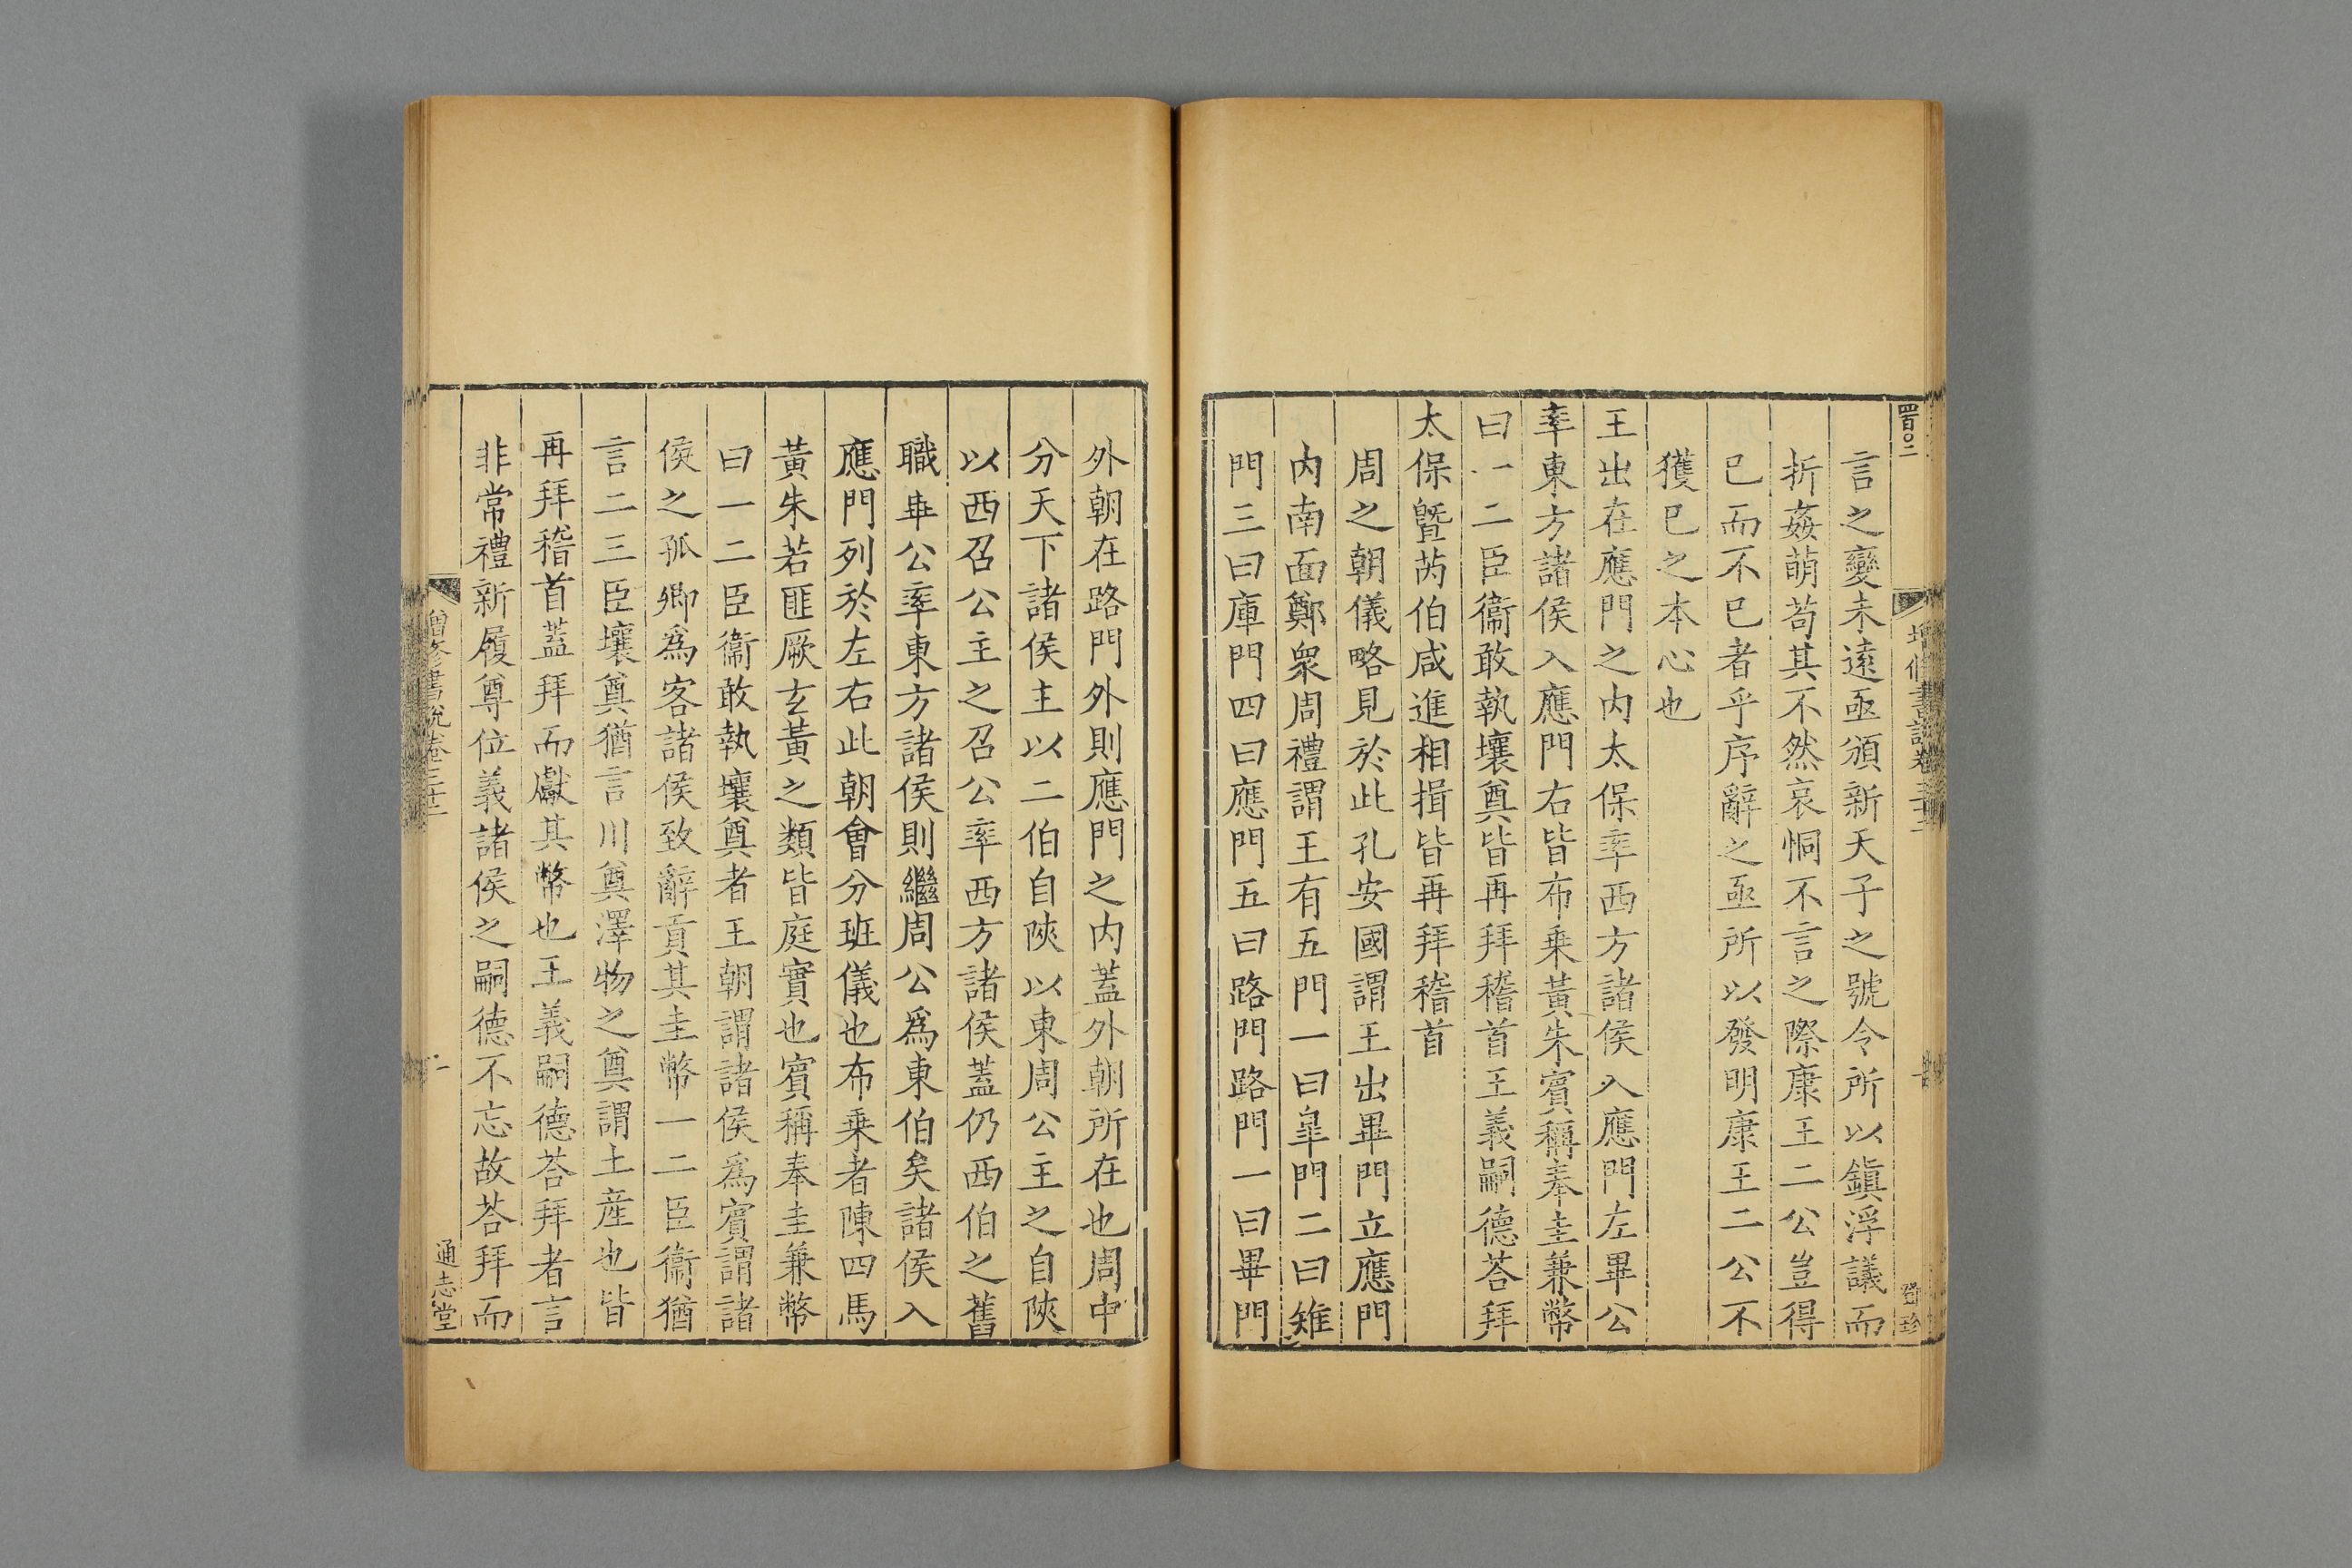 言之變未遠亟頒新天子之號令所以鎮浮議而
折姦萌苟其不然哀恫不言之際康王二公豈得
已而不已者乎序辭之亟所以發明康王二公不
獲已之本心也
王出在應門之内太保率西方諸侯入應門左畢公
率東方諸侯入應門右皆布乗黃朱賓稱奉圭兼幣
曰一二臣衞敢執壤奠皆再拜稽首王義嗣德荅拜
太保曁芮伯咸進相揖皆再拜稽首
周之朝儀略見於此孔安國謂王出畢門立應門
内南面鄭衆周禮謂王有五門一曰臯門二曰雉
門三曰庫門四曰應門五曰路門路門一曰畢門
外朝在路門外則應門之内蓋外朝所在也周中
分天下諸侯主以二伯自陜以東周公主之自陜
以西召公主之召公率西方諸侯蓋仍西伯之舊
職畢公率東方諸侯則繼周公爲東伯矣諸侯入
應門列於左右此朝會分班儀也布乗者陳四馬
黃朱若匪厥玄黃之類皆庭實也賓稱奉圭兼幣
曰一二臣衞敢執壤奠者王朝謂諸侯爲賓謂諸
侯之孤卿爲客諸侯致辭貢其圭幣一二臣衞猶
言二三臣壤奠猶言川奠澤物之奠謂土産也皆
再拜稽首蓋拜而獻其幣也王義嗣德荅拜者言
非常禮新履尊位義諸侯之嗣德不忘故荅拜而
增修書說卷三十二
通志堂